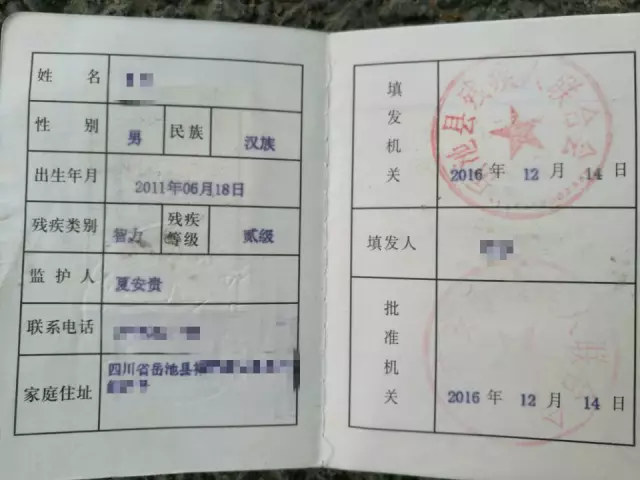 姓名
性别 男 民族 汉族
出生年月 2011年06月18日
残疾类别 智力 残疾等级 贰级
监护人 夏安贵
联系电话
家庭住址 四川省岳池县
填发机关 池县残疾人联合会
2016年12月14日
填发人
批准机关
2016年12月14日